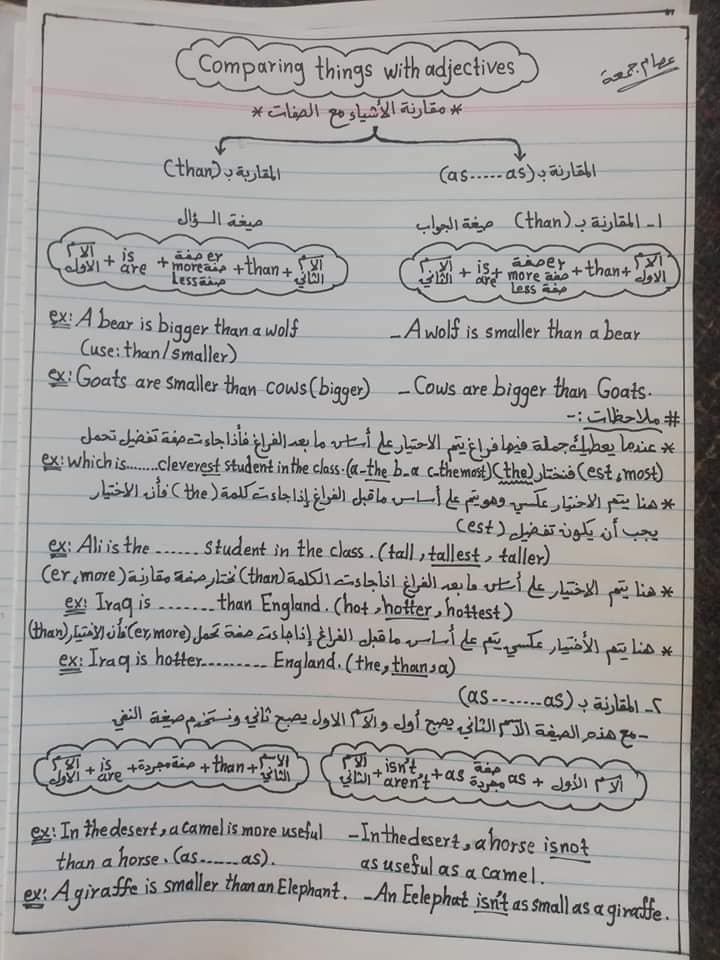 Comparing things with adjectives
عصام جمعة
* مقارنة الأشياء مع الصفات *
المقارنة بـ (as.....as)
المقاربة بـ (than)
١- المقارنة بـ (than) صيغة الجواب
صيغة السؤال
الاسم الثاني + is are + صفة er more صفة less صفة + than + الاسم الأول
الاسم الأول + is are + صفة er more صفة less صفة + than + الاسم الثاني
ex: A bear is bigger than a wolf
(use: than/smaller)
- A wolf is smaller than a bear
ex: Goats are smaller than cows (bigger)
- Cows are bigger than Goats.
# ملاحظات :-
* عندما يعطيك جملة فيها فراغ يتم الاختيار على أساس ما بعد الفراغ فأذا جاءت صفة تفضيل تحمل
(est, most) فنختار (the) ex: which is.......cleverest student in the class. (a-the b-a c-the most)
* هنا يتم الاختيار عكسي وهو يتم على أساس ماقبل الفراغ إذا جاءت كلمة (the) فأن الاختيار
يجب أن يكون تفضيل (est)
ex: Ali is the ....... student in the class. (tall, tallest, taller)
* هنا يتم الاختيار على أساس ما بعد الفراغ اذا جاءت الكلمة (than) نختار صفة مقارنة (er, more)
ex: Iraq is ........ than England. (hot, hotter, hottest)
* هنا يتم الأختيار عكسي يتم على أساس ماقبل الفراغ إذا جاءت صفة تحمل (er, more) فأن الاختيار (than)
ex: Iraq is hotter.......... England. (the, than, a)
٢- المقارنة بـ (as.......as)
- مع هذه الصيغة الاسم الثاني يصبح أول والاسم الاول يصبح ثاني ونستخدم صيغة النفي
الاسم الثاني + isn't, aren't + as صفة مجردة as + الاسم الأول
الاسم الأول + is are + صفة مجردة + than + الاسم الثاني
ex: In the desert, a camel is more useful
than a horse. (as.....as).
- In the desert, a horse is not
as useful as a camel.
ex: A giraffe is smaller than an Elephant.
- An Eelephat isn't as small as a giraffe.